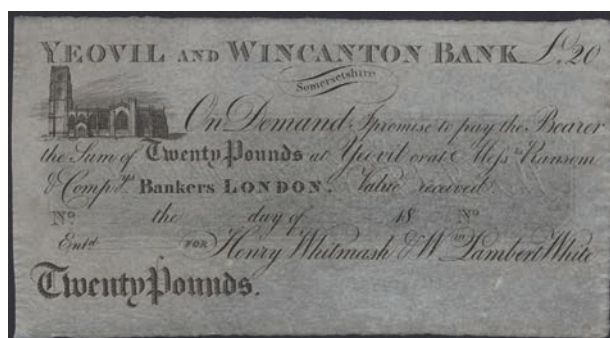 YEOVIL AND WINCANTON BANK £.20
Somersetshire
On Demand I promise to pay the Bearer
the Sum of Twenty Pounds at Yeovil or at Messrs Ransom
& Compys Bankers LONDON. Value received
No. the day of 18 No.
Entd. FOR Henry Whitmash & Wm Lambert White
Twenty Pounds.